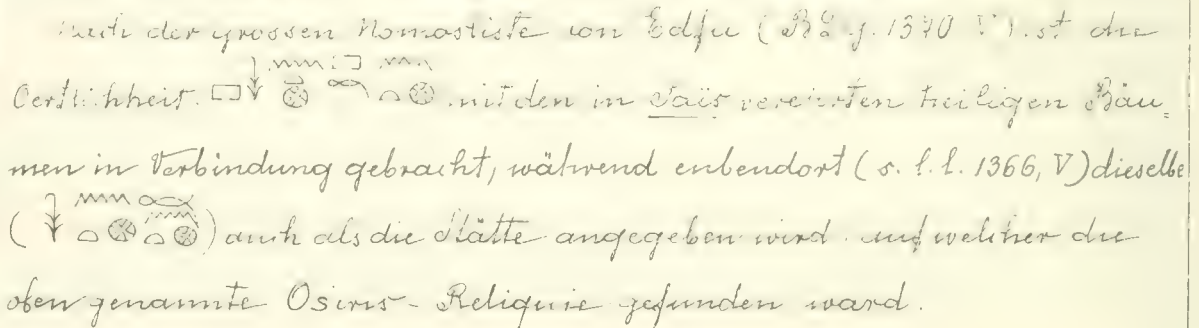 Nach der grossen Nomosliste von Edfu ( 1370 V) ist die
Oertlichheit mit den in Saïs verehrten heiligen Bäu-
men in Verbindung gebracht, während enbendort (s. l. l. 1366, V) dieselbe
( ) auch als die Stätte angegeben wird auf welcher die
oben genannte Osiris-Reliquie gefunden ward.